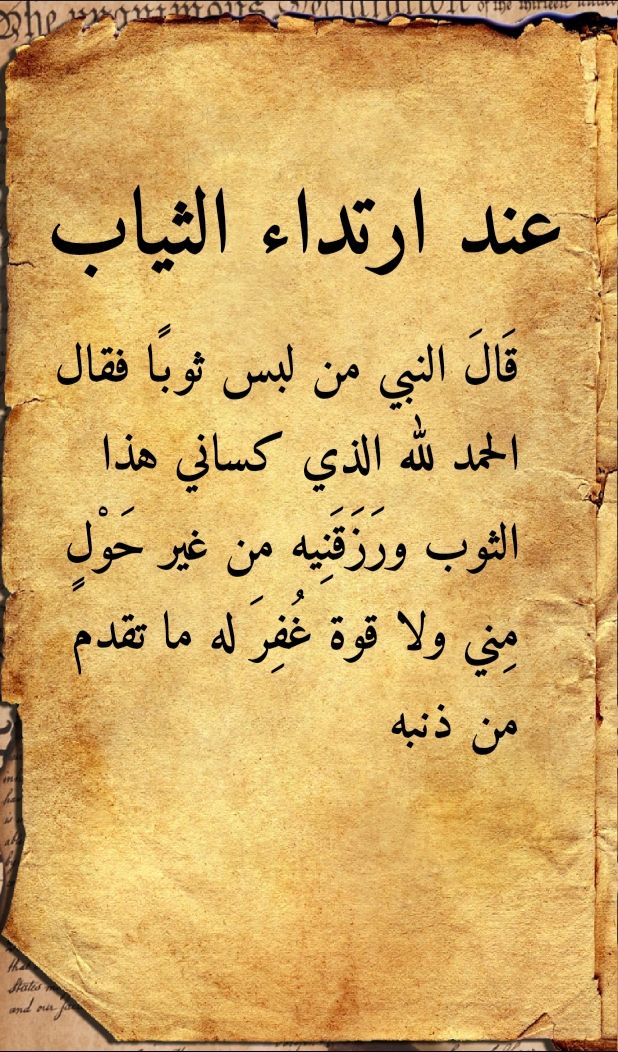 The unanimous Declaration of the thirteen united
عند ارتداء الثياب
قَالَ النبي من لبس ثوبًا فقال
الحمد لله الذي كساني هذا
الثوب ورَزَقَنِيه من غير حَوْلٍ
مِني ولا قوة غُفِرَ له ما تقدم
من ذنبه
that
States
and our